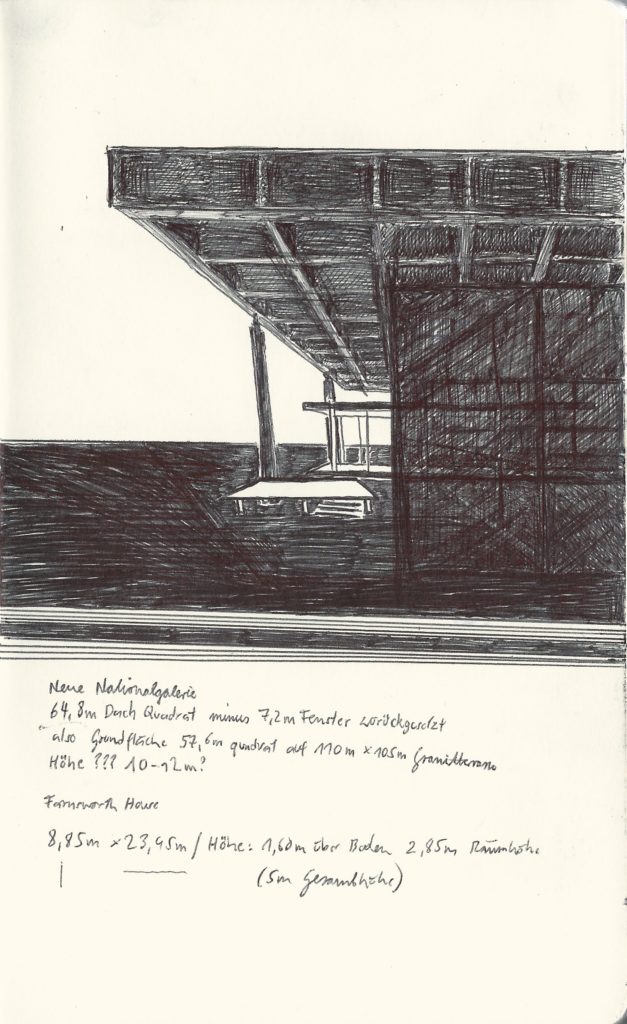 Neue Nationalgalerie
64,8m Dach Quadrat minus 7,2m Fenster zurückgesetzt
also Grundfläche 57,6m quadrat auf 110m × 105m Granitterrasse
Höhe ??? 10-12m?
Farnsworth House
8,85m × 23,95m / Höhe: 1,60m über Boden 2,85m Raumhöhe
(5m Gesamthöhe)